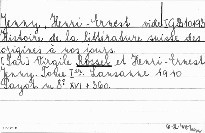 Jenny, Henri-Ernest vide GD 10193
Histoire de la littérature suisse des
origines à nos jours.
(Sans Virgile Rossel et Henri-Ernest
Jenny. Tome Ier. Lausanne 1910
Payot in 8° XVI + 360.